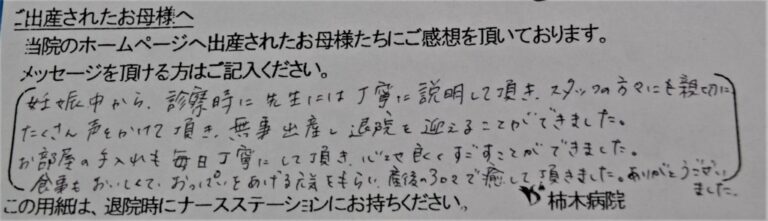 ご出産されたお母様へ
当院のホームページへ出産されたお母様たちにご感想を頂いております。
メッセージを頂ける方はご記入ください。
妊娠中から、診察時に先生には丁寧に説明して頂き、スタッフの方々にも親切に
たくさん声をかけて頂き、無事出産し退院を迎えることができました。
お部屋の手入れも毎日丁寧にして頂き、心地良くすごすことができました。
食事もおいしくて、おっぱいをあげる元気をもらい、産後の30日で癒して頂きました。ありがとうございました。
この用紙は、退院時にナースステーションにお持ちください。 柿木病院